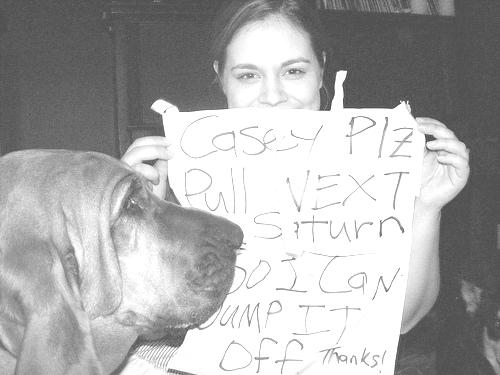 Casey Plz
Pull VEXT
Saturn
So I CAN
JUMP IT
Off Thanks!